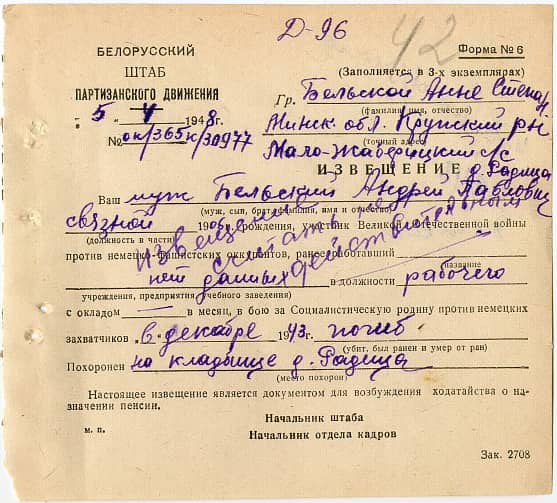 Д-96
42
Форма № 6
БЕЛОРУССКИЙ
ШТАБ
ПАРТИЗАНСКОГО ДВИЖЕНИЯ
"5" V 1948г.
№ ок/365к/30977
(Заполняется в 3-х экземплярах)
Гр. Бельской Анне Степан
(фамилия, имя, отчество)
Минск. обл. Крупский р-н
(точный адрес)
Мало-Жаберицкий с/с
ИЗВЕЩЕНИЕ д. Радица
Ваш муж Бельский Андрей Павлович
(муж, сын, брат, фамилия, имя и отчество)
связной 1906г. рождения, участник Великой Отечественной войны
(должность в части)
против немецко-фашистских оккупантов, ранее работавший
(название
нет данных в должности рабочего
учреждения, предприятия учебного заведения)
с окладом — в месяц, в бою за Социалистическую родину против немецких
захватчиков в декабре 1943г. погиб
(убит, был ранен и умер от ран)
Похоронен на кладбище д. Радица
(место похорон)
Настоящее извещение является документом для возбуждения ходатайства о на-
значении пенсии.
Начальник штаба
м. п.
Начальник отдела кадров
Зак. 2708
Извещение считать недействительным